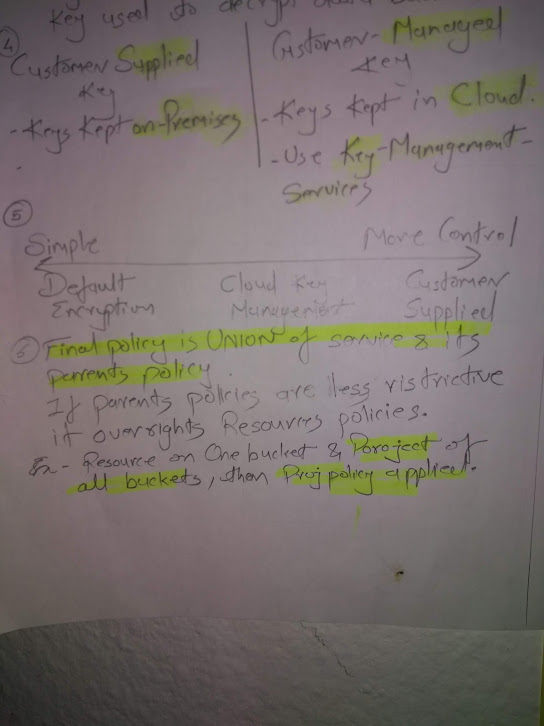 Key used to decrypt
④
Customer Supplied
Key
- Keys Kept on-Premises
-
Customer-Managed
Key
- Keys Kept in Cloud.
- Use Key-Management-
Services
⑤
Simple More Control
Default Cloud Key Customer
Encryption Management Supplied
⑥ Final policy is UNION of service & its
parents policy.
If parents policies are less ristrictive
it overrights Resources policies.
Ex- Resource on One bucket & Poroject of
all buckets, then Proj policy applied.